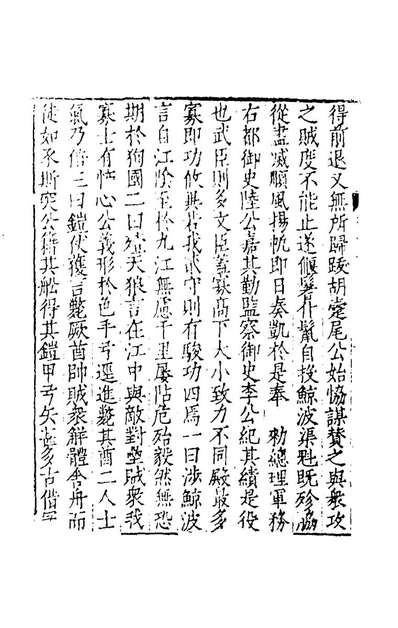 得前退又無所歸跋胡疐尾公始協謀賛之與衆攻
之賊度不能止遂偃髽作髴自投鯨波渠魁既殄脇
從盡滅順風揚帆即日奏凱於是奉 勑總理軍務
右都御史陸公嘉其勤監察御史李公紀其績是役
也武臣則多文臣蓋寡高下大小致力不同殿最多
寡即功攸異若我貳守則有駿功四焉一曰涉鯨波
言自江陰至於九江無慮千里屢阽危殆毅然無恐
期於狥國二曰殪天狼言在江中與敵對壘賊衆我
寡士有恇心公義形於色手弓逕進斃其酋二人士
氣乃倍三曰鎧使獲言斃厥酋帥賊衆解體舍舟而
徒如豕斯突公籍其舩得其鎧甲弓矢甚多古偕